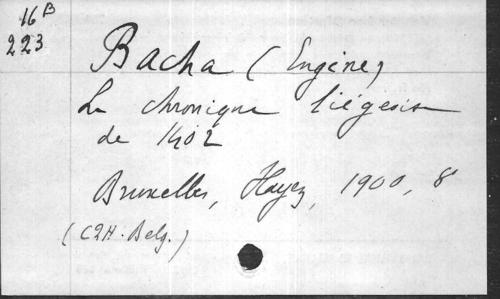 16 B
223
Bacha (Eugène)
La chronique liégeoise
de 1402
Bruxelles, Hayez, 1900, 8°
(CRH. Belg.)